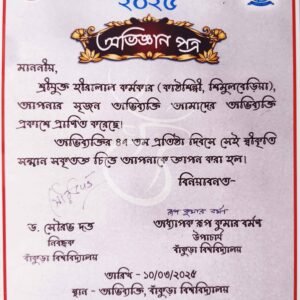 ২০২৫
অভিজ্ঞান পত্র
মাননীয়,
শ্রীযুক্ত হীরালাল কর্মকার (কাষ্ঠশিল্পী, শিমুলবেড়িয়া),
আপনার সৃজন অভিব্যক্তি আমাদের অভিব্যক্তি
প্রকাশে প্রাণিত করেছে।
অভিব্যক্তির ৪৭ তম প্রতিষ্ঠা দিবসে সেই স্বীকৃতি
সম্মান সকৃতজ্ঞ চিত্তে আপনাকে জ্ঞাপন করা হল।
বিনয়াবনত-
রূপ কুমার বর্মণ
ড. সৌরভ দত্ত
অধ্যাপক রূপ কুমার বর্মণ
নিবন্ধক
উপাচার্য
বাঁকুড়া বিশ্ববিদ্যালয়
বাঁকুড়া বিশ্ববিদ্যালয়
তারিখ - ১০/০৩/২০২৫
স্থান - অভিব্যক্তি, বাঁকুড়া বিশ্ববিদ্যালয়